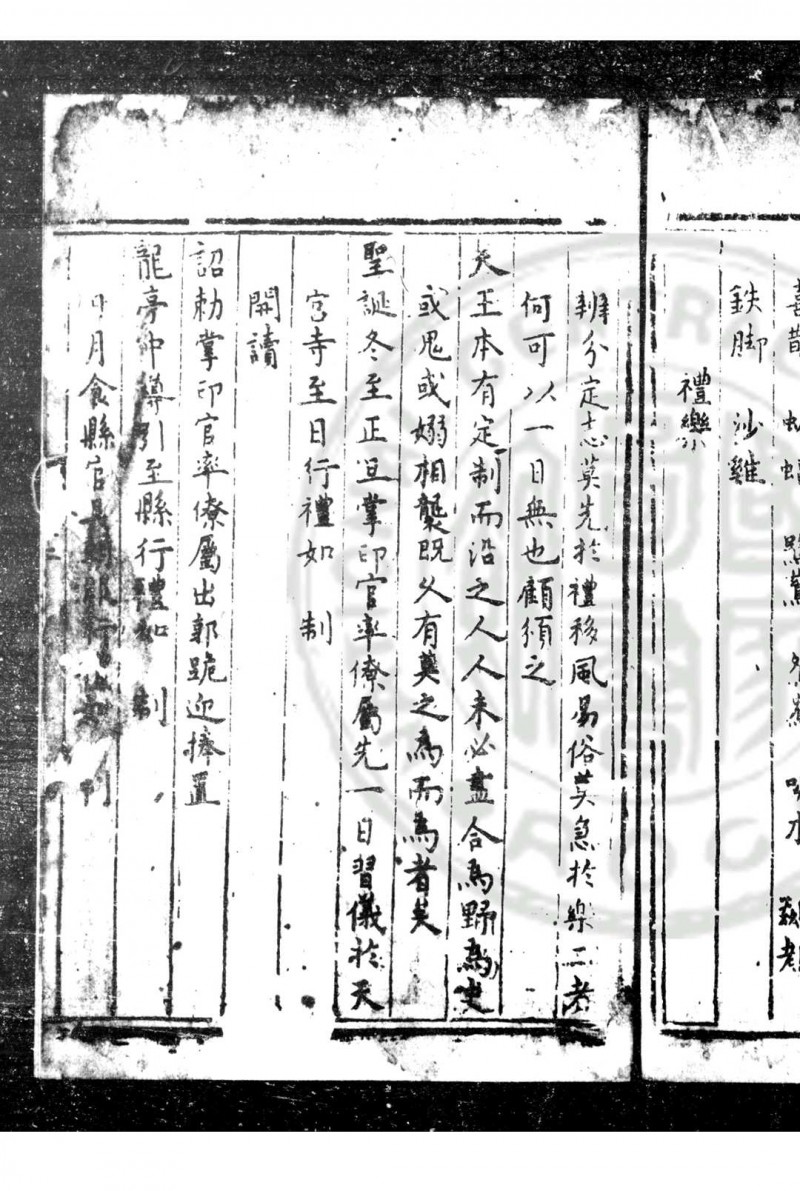 喜昔
鉄脚 沙雞
禮樂
辨分定志莫先於禮移風易俗莫急於樂二者
何可以一日無也顧須之
天王本有定制而沿之人人未必盡合爲野爲史
或鬼或嫋相襲既久有莫之爲而爲者矣
聖誕冬至正旦掌印官率僚屬先一日習儀於天
宮寺至日行禮如 制
開讀
詔勅掌印官率僚屬出郭跪迎捧置
龍亭中導引至縣行禮如 制
日月食縣官